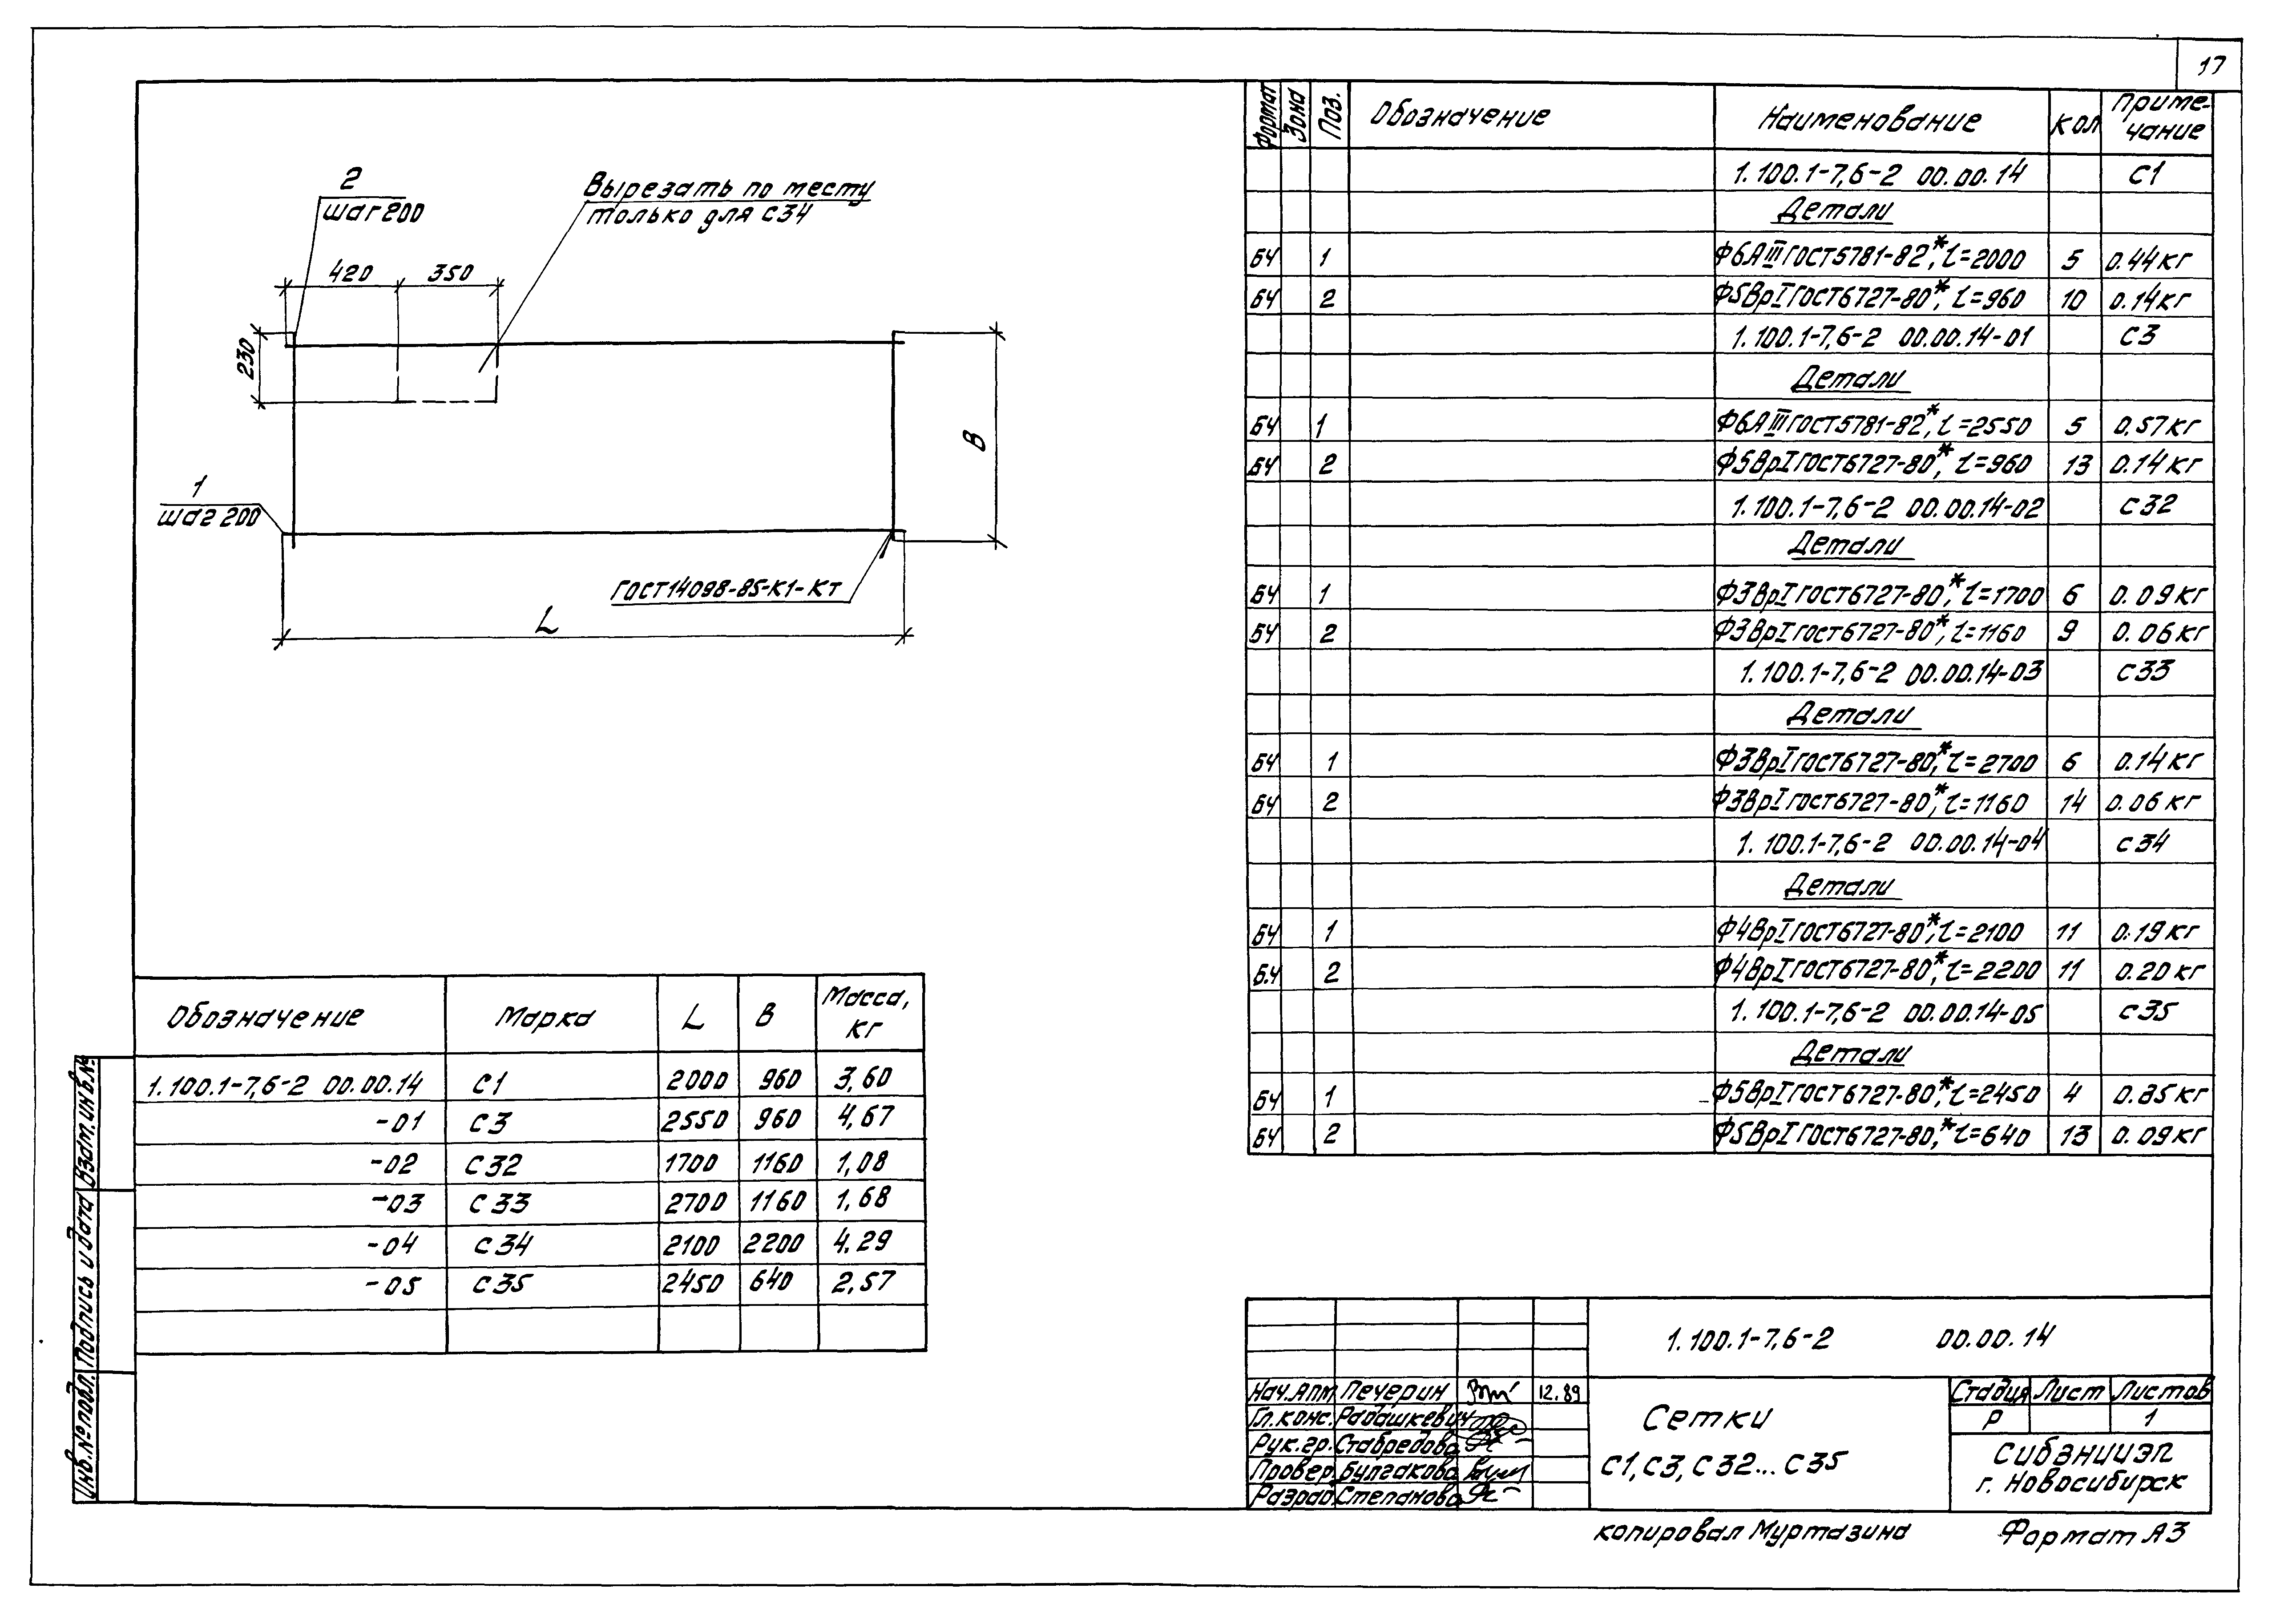 17
2
шаг 200
Вырезать по месту
только для С34
420 350
230
В
1
шаг 200
ГОСТ14098-85-К1-Кт
L
Формат Зона Поз. Обозначение Наименование Кол Приме-
чание
1.100.1-7,6-2 00.00.14 С1
Детали
БЧ 1 Ф6АIII ГОСТ5781-82*, l=2000 5 0.44кг
БЧ 2 Ф5ВрI ГОСТ6727-80*, l=960 10 0.14кг
1.100.1-7,6-2 00.00.14-01 С3
Детали
БЧ 1 Ф6АIII ГОСТ5781-82*, l=2550 5 0.57кг
БЧ 2 Ф5ВрI ГОСТ6727-80*, l=960 13 0.14кг
1.100.1-7,6-2 00.00.14-02 С32
Детали
БЧ 1 Ф3ВрI ГОСТ6727-80*, l=1700 6 0.09кг
БЧ 2 Ф3ВрI ГОСТ6727-80*, l=1160 9 0.06кг
1.100.1-7,6-2 00.00.14-03 С33
Детали
БЧ 1 Ф3ВрI ГОСТ6727-80*, l=2700 6 0.14кг
БЧ 2 Ф3ВрI ГОСТ6727-80*, l=1160 14 0.06кг
1.100.1-7,6-2 00.00.14-04 С34
Детали
БЧ 1 Ф4ВрI ГОСТ6727-80*, l=2100 11 0.19кг
Б.Ч 2 Ф4ВрI ГОСТ6727-80*, l=2200 11 0.20кг
1.100.1-7,6-2 00.00.14-05 С35
Детали
БЧ 1 Ф5ВрI ГОСТ6727-80*, l=2450 4 0.35кг
БЧ 2 Ф5ВрI ГОСТ6727-80,* l=640 13 0.09кг
Обозначение Марка L В Масса,
кг
1.100.1-7,6-2 00.00.14 С1 2000 960 3,60
-01 С3 2550 960 4,67
-02 С32 1700 1160 1,08
-03 С33 2700 1160 1,68
-04 С34 2100 2200 4.29
-05 С35 2450 640 2,57
Взам. инв. №
Подпись и дата
Инв. № подл.
1.100.1-7,6-2 00.00.14
Нач.АПМ Печерин 12.89
Гл.конс. Рабашкевич
Рук.гр. Стабредова
Провер. Булгакова
Разраб. Степанова
Сетки
С1, С3, С32...С35
Стадия Лист Листов
Р 1
СибЗНИИЭП
г. Новосибирск
копировал Муртазина Формат А3